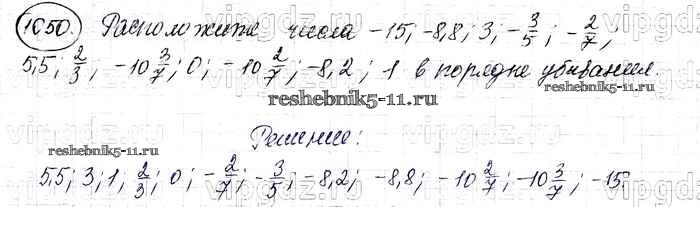 1050. Расположите числа -15; -8,8; 3; -3/5; -2/7;
5,5; 2/3; -10 3/7; 0; -10 2/7; -8,2; 1 в порядке убывания.
reshebnik5-11.ru
Решение:
reshebnik5-11.ru
5,5; 3; 1; 2/3; 0; -2/7; -3/5; -8,2; -8,8; -10 2/7; -10 3/7; -15.